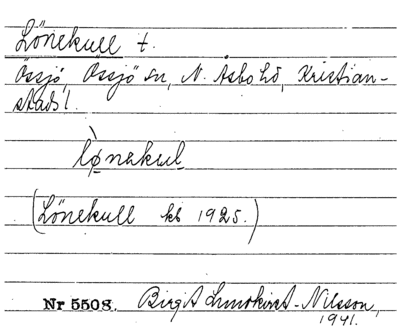 Lönekull t.
Össjö, Össjö sn, N. Åsbo hd, Kristian-
stads l.
lø̀nəkul
(Lönekull kb 1925.)
Nr 5508. Birgit Lundkvist-Nilsson,
1941.